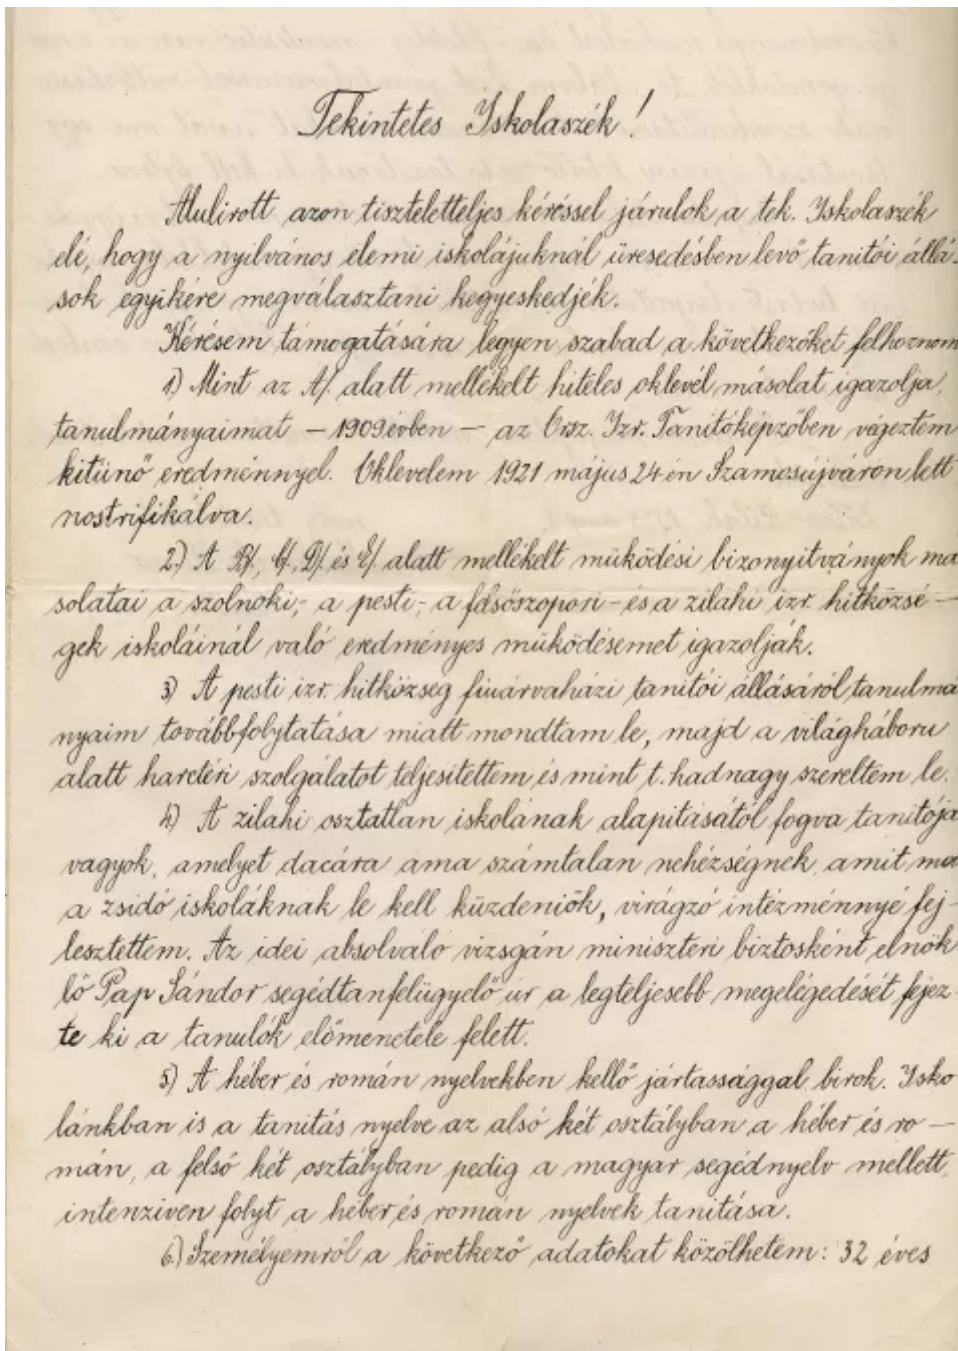 Tekintetes Iskolaszék!
Alulirott azon tiszteletteljes kéréssel járulok a tek. Iskolaszék
elé, hogy a nyilvános elemi iskolájuknál üresedésben levő tanitói állá-
sok egyikére megválasztani kegyeskedjék.
Kérésem támogatására legyen szabad a következőket felhoznom
1) Mint az A/. alatt mellékelt hiteles oklevél másolat igazolja,
tanulmányaimat – 1909 évben – az Orsz. Izr. Tanitóképzőben végeztem
kitünő eredménnyel. Oklevelem 1921 május 24-én Szamosújváron lett
nostrifikálva.
2.) A B/., C/., D/. és E/. alatt mellékelt müködési bizonyitványok ma
solatai a szolnoki,- a pesti,- a felsőszopori – és a zilahi izr. hitközsé –
gek iskoláinál való eredményes müködésemet igazolják.
3) A pesti izr. hitközség fiuárvaházi tanitói állásáról tanulmá
nyaim továbbfolytatása miatt mondtam le, majd a világháboru
alatt harctéri szolgálatot teljesitettem és mint t. hadnagy szereltem le.
4) A zilahi osztatlan iskolának alapitásától fogva tanitója
vagyok, amelyet dacára ama számtalan nehézségnek, amit ma
a zsidó iskoláknak le kell küzdeniök, virágzó intézménnyé fej-
lesztettem. Az idei absolváló vizsgán miniszteri biztosként elnök
lő Pap Sándor segédtanfelügyelő úr a legteljesebb megelégedését fejez-
te ki a tanulók előmenetele felett.
5) A héber és román nyelvekben kellő jártassággal birok. Isko
lánkban is a tanitás nyelve az alsó két osztályban a héber és ro –
mán, a felső két osztályban pedig a magyar segédnyelv mellett,
intenziven folyt a héber és román nyelvek tanitása.
6.) Személyemről a következő adatokat közölhetem: 32 éves